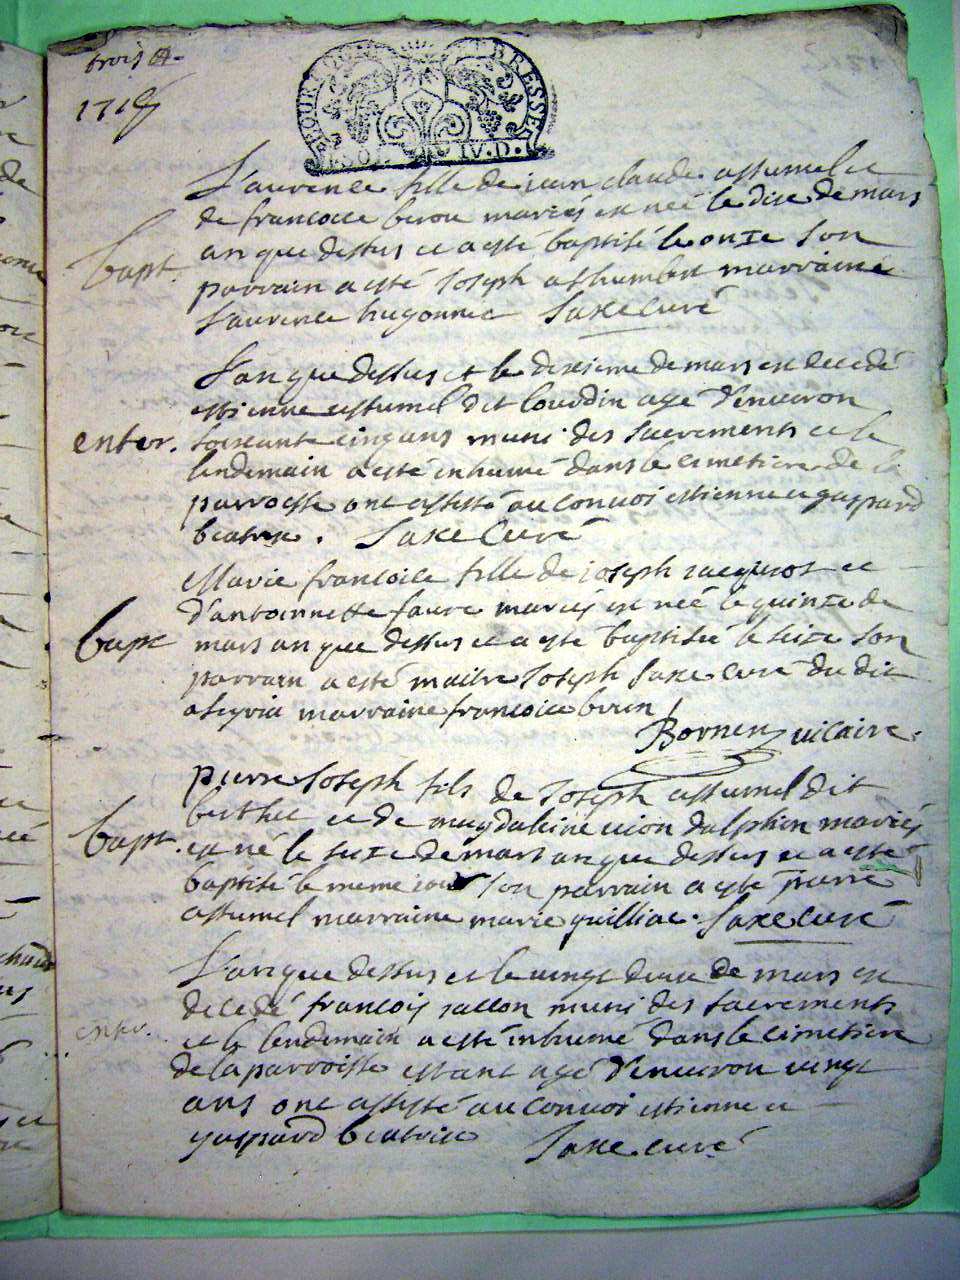 trois
1718
BOURG ET BRESSE
I.SOL. IV.D.
Laurence fille de jean claude assumel et
de francoise berou mariés est née le dixe de mars
an que dessus et a esté baptisé le onze son
bapt.
parrain a esté Joseph assumel marraine
Laurence hugonne Saxe Curé
L'an que dessus et le dixieme de mars est decedé
estienne assumel dit lourdin agé d'environ
enter. soixante cinq ans muni des sacrements et le
lendemain a esté inhumé dans le cimetiere de la
parroisse ont assisté au convoi estienne et gaspard
beatrix. Saxe Curé
Marie francoise fille de joseph jacquot et
d'antoinette favre mariés est née le quinze de
bapt mars an que dessus et a esté baptisée le seize son
parrain a esté maitre Joseph Saxe curé du dit
marraine francoise
Bornen vicaire.
pierre Joseph fils de Joseph assumel dit
berthet et de magdaleine vion dalphin mariés
bapt. est né le seize de mars an que dessus et a esté
baptisé le meme jour son parrain a esté pierre
assumel marraine marie quilliac. Saxe curé
L'an que dessus et le vingt deux de mars est
decedé francois jallon muni des sacrements
enter. et le lendemain a esté inhumé dans le cimetiere
de la parroisse estant agé d'environ vingt
ans ont assisté au convoi estienne et
gaspard beatrix Saxe curé